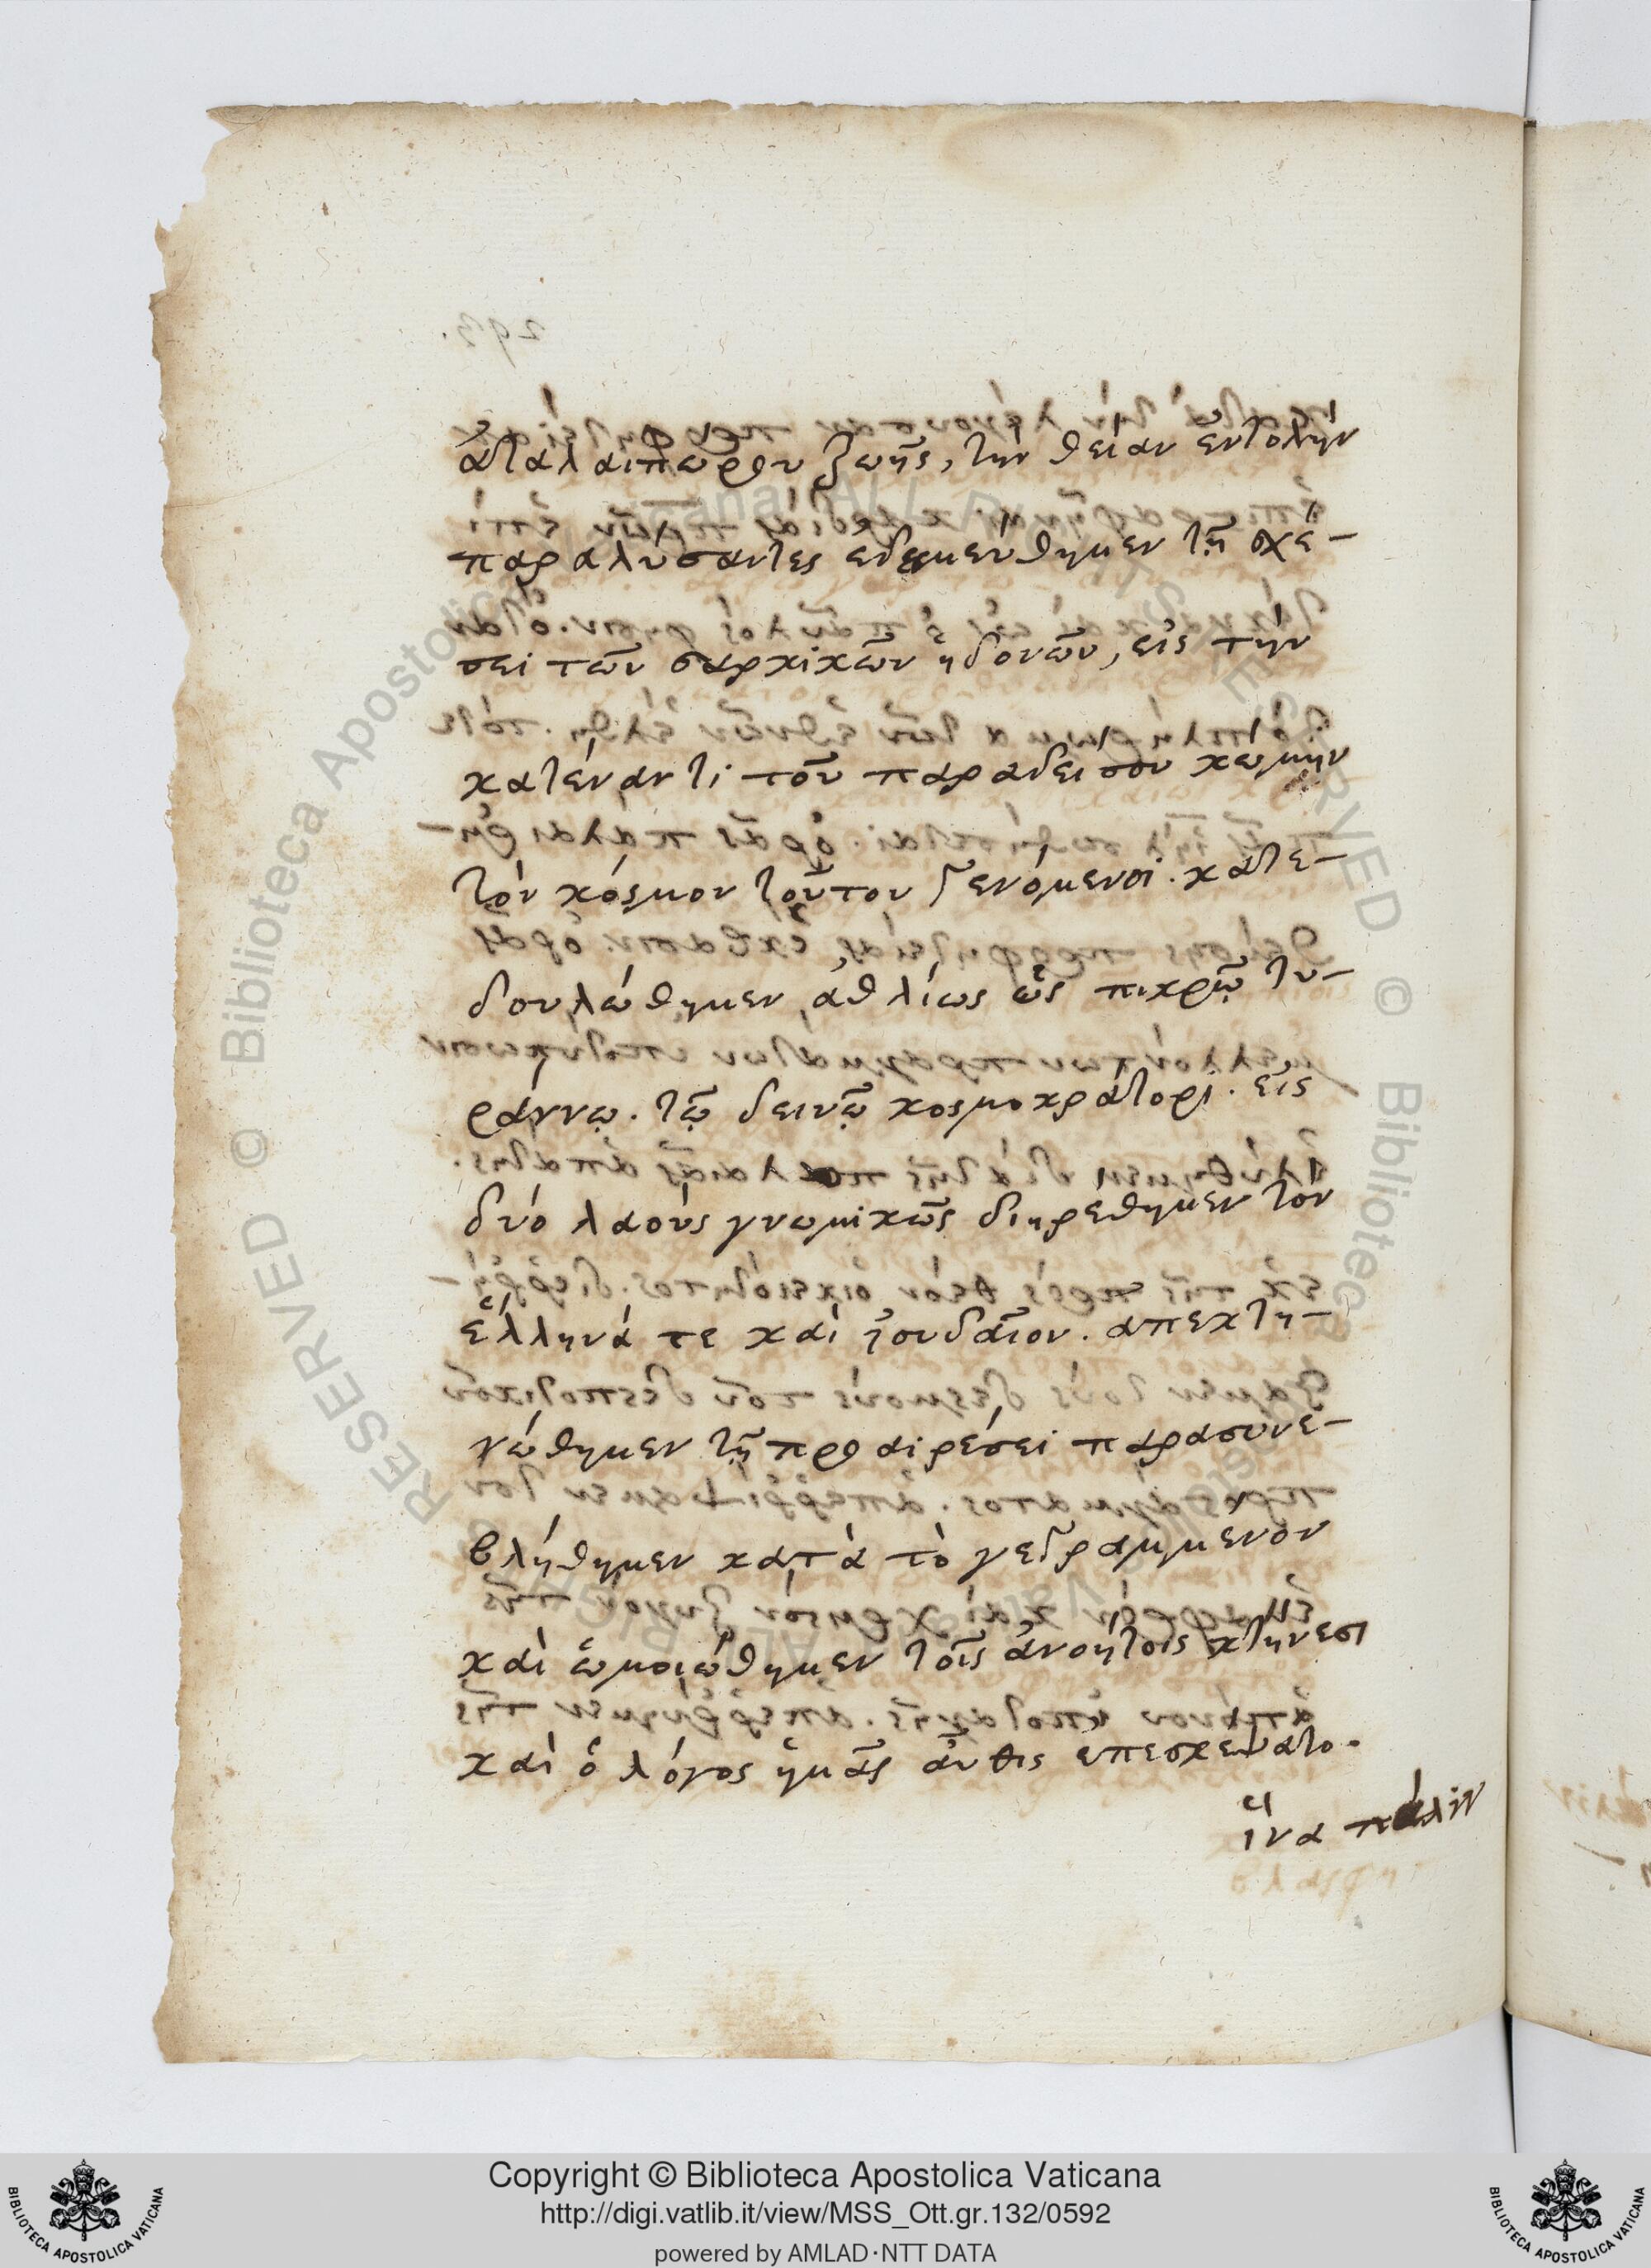 ἀταλαιπώρου ζωῆς, τὴν θείαν ἐντολὴν
παραλύσαντες ἐδεσμεύθημεν τῇ σχέ-
σει τῶν σαρκικῶν ἡδονῶν, εἰς τὴν
κατέναντι τοῦ παραδείσου κώμην
τὸν κόσμον τοῦτον γενόμενοι. κατε-
δουλώθημεν ἀθλίως ὡς πικρῷ τυ-
ράννῳ. τῷ δεινῷ κοσμοκράτορι. εἰς
δύο λαοὺς γνωμικῶς διῃρέθημεν τὸν
ἕλληνά τε καὶ ἰουδαῖον. ἀπεκτη-
νώθημεν τῇ προαιρέσει παρασυνε-
βλήθημεν κατὰ τὸ γεγραμμένον
καὶ ὡμοιώθημεν τοῖς ἀνοήτοις κτήνεσι
καὶ ὁ λόγος ἡμᾶς αὖθις ἐπεσκέψατο.
ἵνα πάλιν
Copyright © Biblioteca Apostolica Vaticana
http://digi.vatlib.it/view/MSS_Ott.gr.132/0592
powered by AMLAD·NTT DATA
BIBLIOTECA APOSTOLICA VATICANA
BIBLIOTECA APOSTOLICA VATICANA